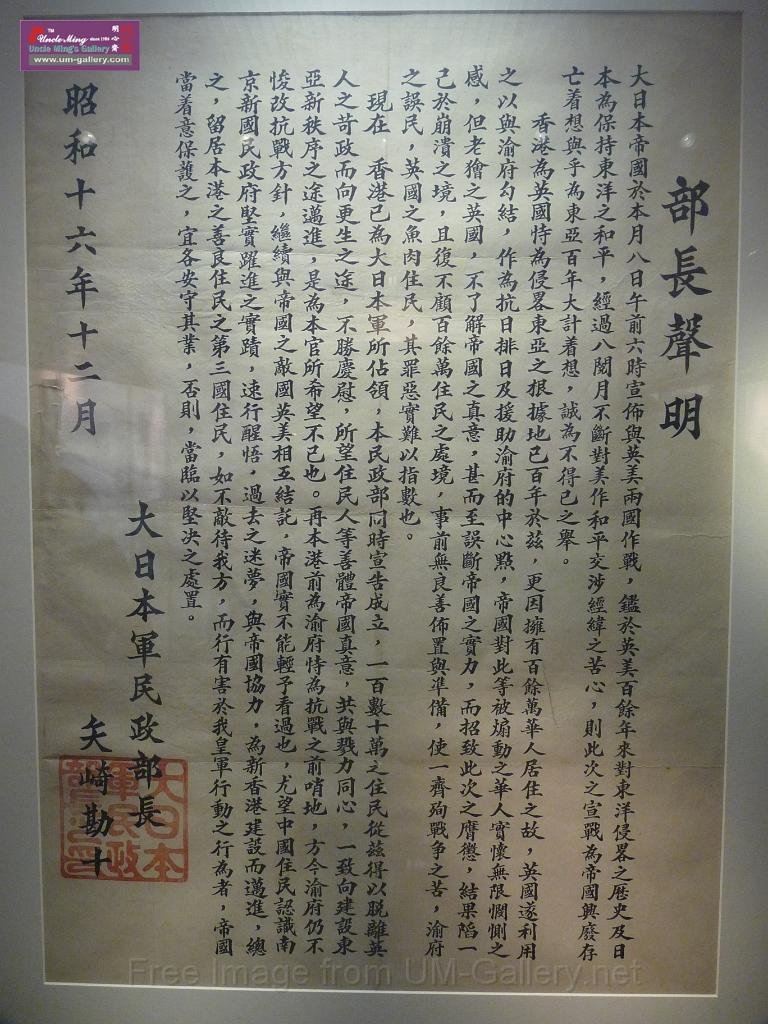 Uncle Ming since 1986
TM
明心齋
Uncle Ming's Gallery
www.um-gallery.com
部長聲明
大日本帝國於本月八日午前六時宣佈與英美兩國作戰，鑑於英美百餘年來對東洋侵畧之歷史及日
本為保持東洋之和平，經過八閱月不斷對美作和平交涉經緯之苦心，則此次之宣戰為帝國興廢存
亡着想與乎為東亞百年大計着想，誠為不得已之舉。
香港為英國恃為侵畧東亞之根據地已百年於茲，更因擁有百餘萬華人居住之故，英國遂利用
之以與渝府勾結，作為抗日排日及援助渝府的中心點，帝國對此等被煽動之華人實懷無限憫惻之
感，但老獪之英國，不了解帝國之真意，甚而至誤斷帝國之實力，而招致此次之膺懲，結果陷一
己於崩潰之境，且復不顧百餘萬住民之處境，事前無良善佈置與準備，使一齊殉戰争之苦，渝府
之誤民，英國之魚肉住民，其罪惡實難以指數也。
現在　香港已為大日本軍所佔領，本民政部同時宣告成立，一百數十萬之住民從茲得以脫離英
人之苛政而向更生之途，不勝慶慰，所望住民人等善體帝國真意，共與戮力同心，一致向建設東
亞新秩序之途邁進，是為本官所希望不已也。再本港前為渝府恃為抗戰之前哨地，方今渝府仍不
悛改抗戰方針，繼續與帝國之敵國英美相互結託，帝國實不能輕予看過也，尤望中國住民認識南
京新國民政府堅實躍進之實蹟，速行醒悟，過去之迷夢，與帝國協力，為新香港建設而邁進，總
之，留居本港之善良住民之第三國住民，如不敵待我方，而行有害於我皇軍行動之行為者，帝國
當着意保護之，宜各安守其業，否則，當臨以堅決之處置。
大日本軍民政部長
矢崎勘十
昭和十六年十二月
大日本
軍民政
部長印
Free Image from UM-Gallery.net